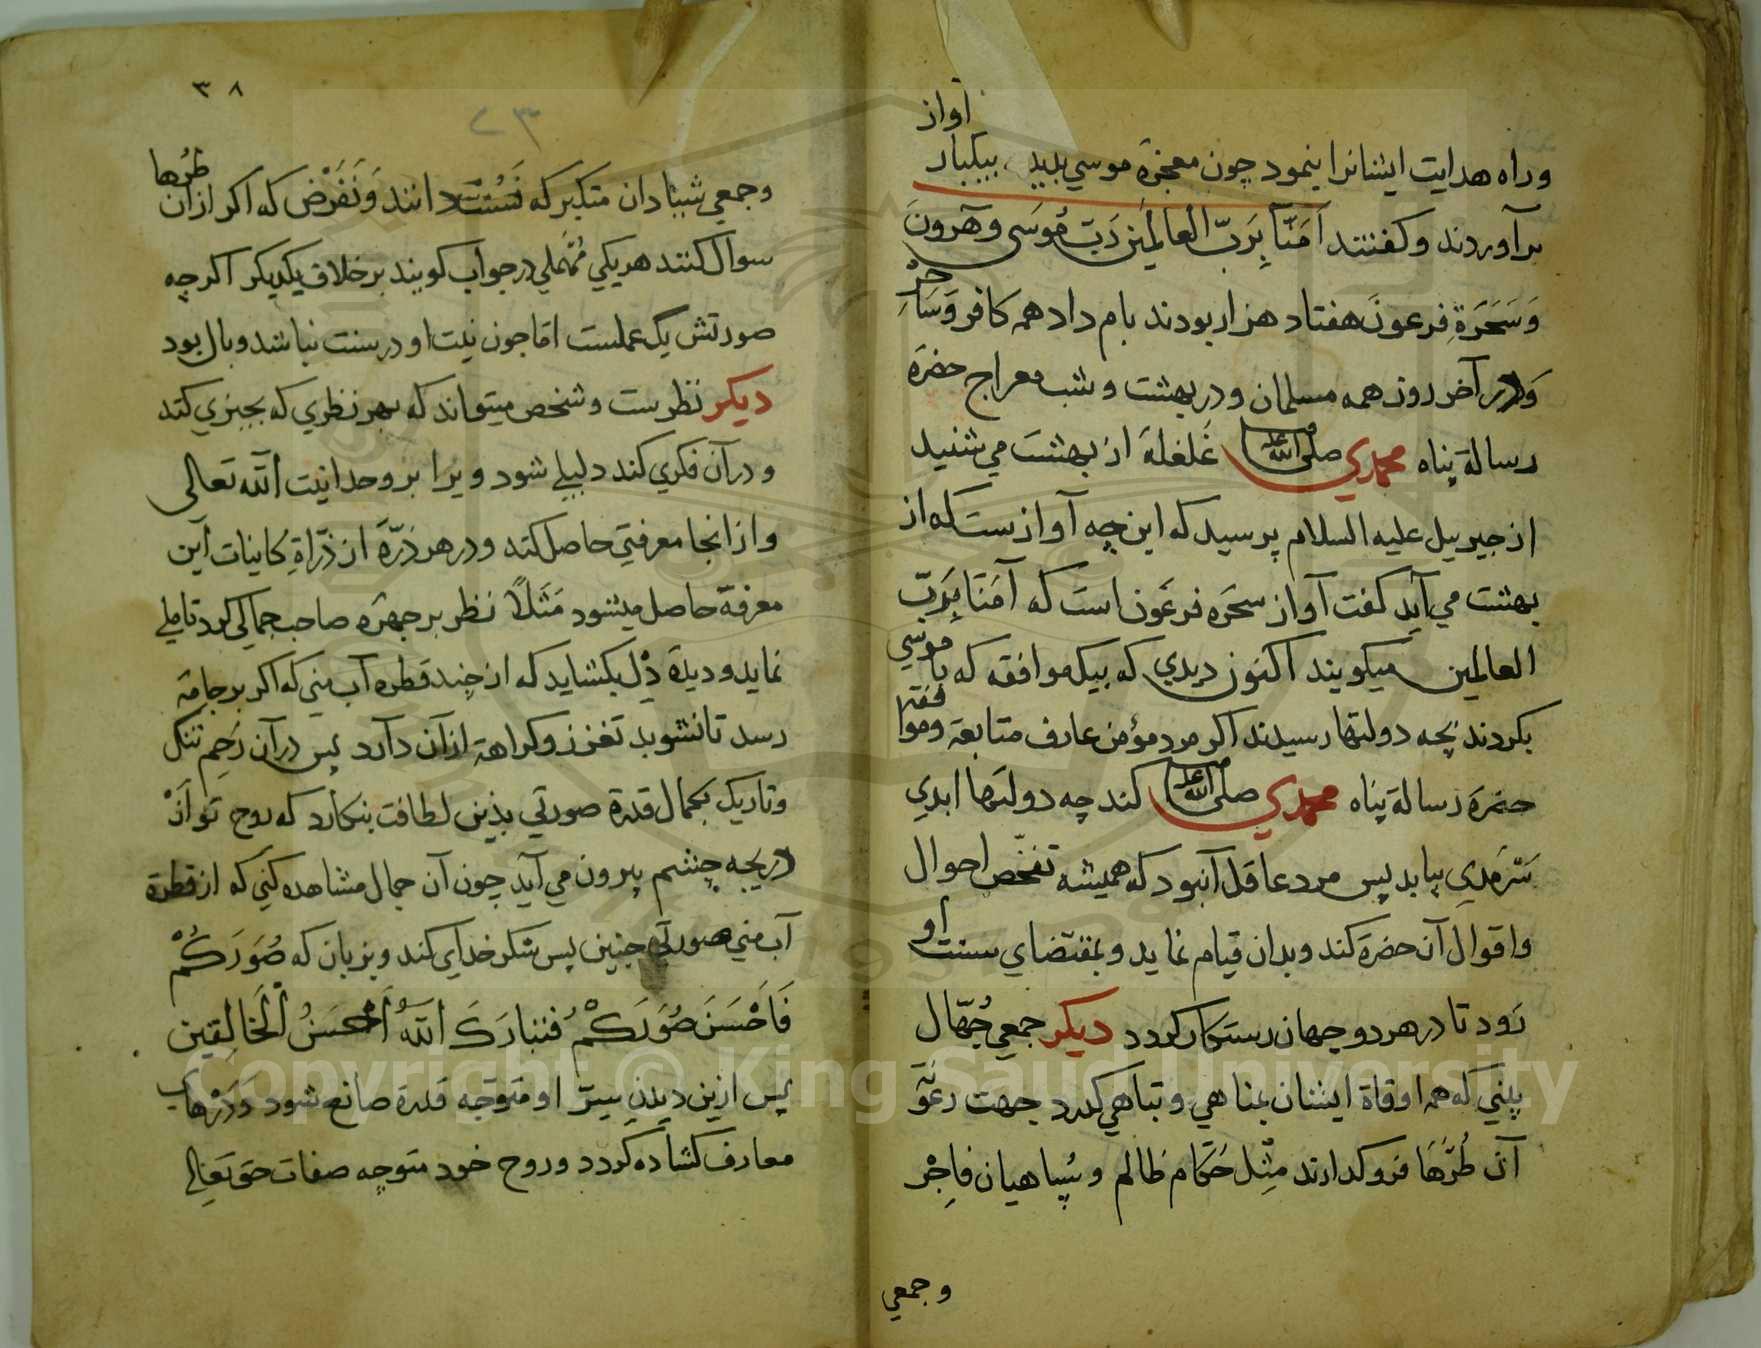 وراه هدایت ایشانرا بنمود چون معجزهٔ موسي بدید بیکبار آواز
برآوردند و کفتند آمَنَّا بِرَبِّ العالَمین رَبِّ مُوسَی وهَرونَ
وَسَحَرَةِ فرعونَ هفتاد هزار بودند بامداد همه کافر وَسَاحِر
وَدر آخر روز همه مسلمان و در بهشت و شب معراج حضرة
رسالة پناه محمدي صلی الله علیه غَلغلهَ از بهشت مي شنید
از جبرییل علیه السلام پرسید که این چه آوازست که از
بهشت مي آید کفت آواز سحَره فرعَون است که آمَنَا بِرَبّ
العالمین میکویند اکنون دیدي که بیک موافقه که با موسي
بکردند بچه دولتها رسیدند اکر مرد مؤمن عارف متابعة وموافقة
حضرة رسالة پناه محمدي صلی الله علیه کند چه دولتها ابدي
سَرمَدي بیابد پس مرد عاقل آنبود که همیشه تفحّص احوال
واقوال آن حضرة کند وبدان قیام نماید و بمقتضاي سنت او
رَود تا در هر دو جهان رستکار کردد دیکر جمعي جُهّال
بیني که همه اوقاة ایشان بمناهي و تباهي کدرد جهت
آن طُرُهَا فروکدارند مِثل حُکّام ظالم و سُپاهیان فاجِر
و جمعي
٣٨
٢٣
وجمعي شیادان متکبر که دانند وَنَفَرْض که اکر ازان طرُها
سوال کنند هر یکي در جواب کویند بر خلاف یکدیکر اکرچه
صورتش یک عملست امّا چون نیت او درست نباشد وبال بود
دیکر نظرست و شخص میتواند که بهر نظري که بچیزي کند
و درآن فکري کند دلیلے شود ویرا بر وحدانیت الله تَعالی
و از انجا معرفتي حاصل کند ودر هر ذرّهَ از ذرّاةِ کاینات آین
معرفة حاصل میشود مَثَلاً نظر بر جهرَه صاحب جمالي کرد تاملي
نماید و دیدهٔ دل بکشاید که از چند قطره آب مني که اکر بر جامهٔ
رسد تا نشوید تغزز وکراهة ازآن دآرد پس درآن رَحِم تنک
وتاریک بجمال قدرة صورتي بذین لطافت بنکارد که روح تو اَز
دریچه چشم بیرون مي آید چون آن جمال مشاهده کني که از قطرهٔ
آب مني صورتي چنین پس شکر خداي کند وبزبان که صُوَرَکُمْ
فَاَحْسَنَ صُوَرَکُمْ فتبارَکَ اللهُ اَحْسَنُ الْخَالِقین
پس ازین دیدن سِرّ او متوجه قدرة صانع شود وَدَرْهَاي
معارف کشاده کردد وروح خود متوجه صفات حق تعالی
Copyright © King Saud University
1957